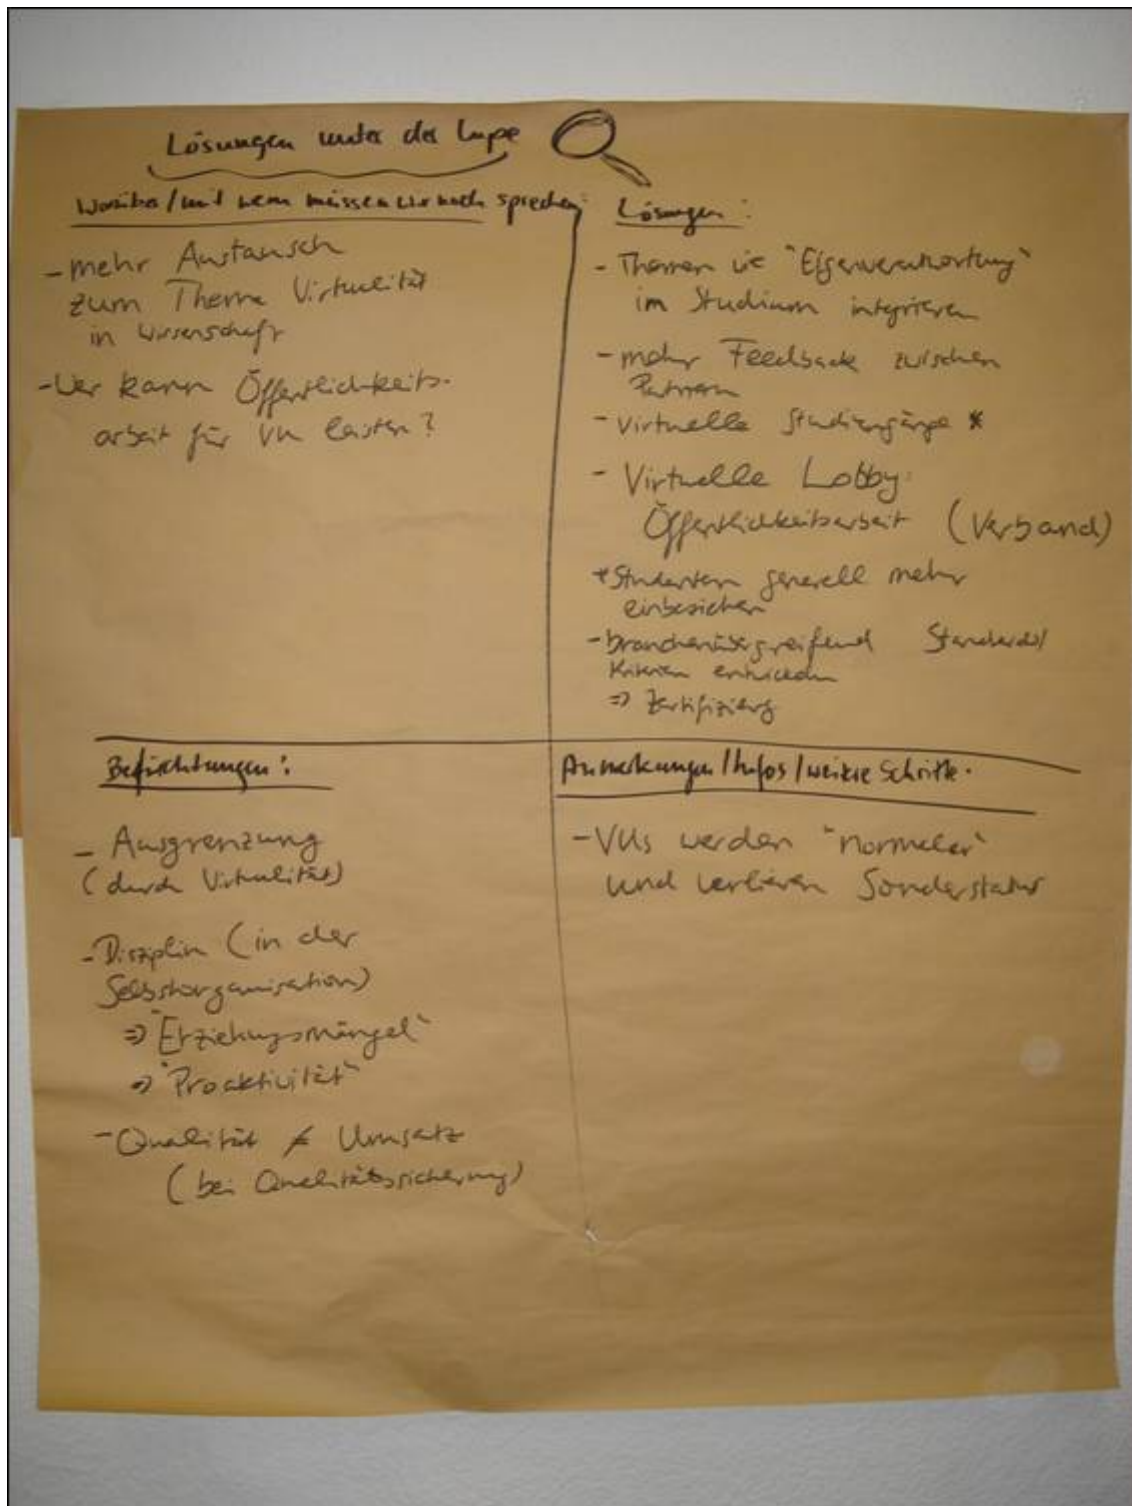 Lösungen unter der Lupe
Worüber/mit wem müssen wir noch sprechen:
- mehr Austausch
zum Thema Virtualität
in Wissenschaft
- Wer kann Öffentlichkeits-
arbeit für VU leisten?
Lösungen:
- Themen wie "Eigenverantwortung"
im Studium integrieren
- mehr Feedback zwischen
Partnern
- Virtuelle Studiengänge *
- Virtuelle Lobby:
Öffentlichkeitsarbeit (Verband)
* Studenten generell mehr
einbeziehen
- branchenübergreifend Standards/
Kriterien entwickeln
=> Zertifizierg
Befürchtungen:
- Ausgrenzung
(durch Virtualität)
- Disziplin (in der
Selbstorganisation)
=> "Erziehungsmängel"
=> "Proaktivität"
- Qualität ≠ Umsatz
(bei Qualitätssicherung)
Anmerkungen/Infos/weitere Schritte:
- VUs werden "normaler"
und verlieren Sonderstatus